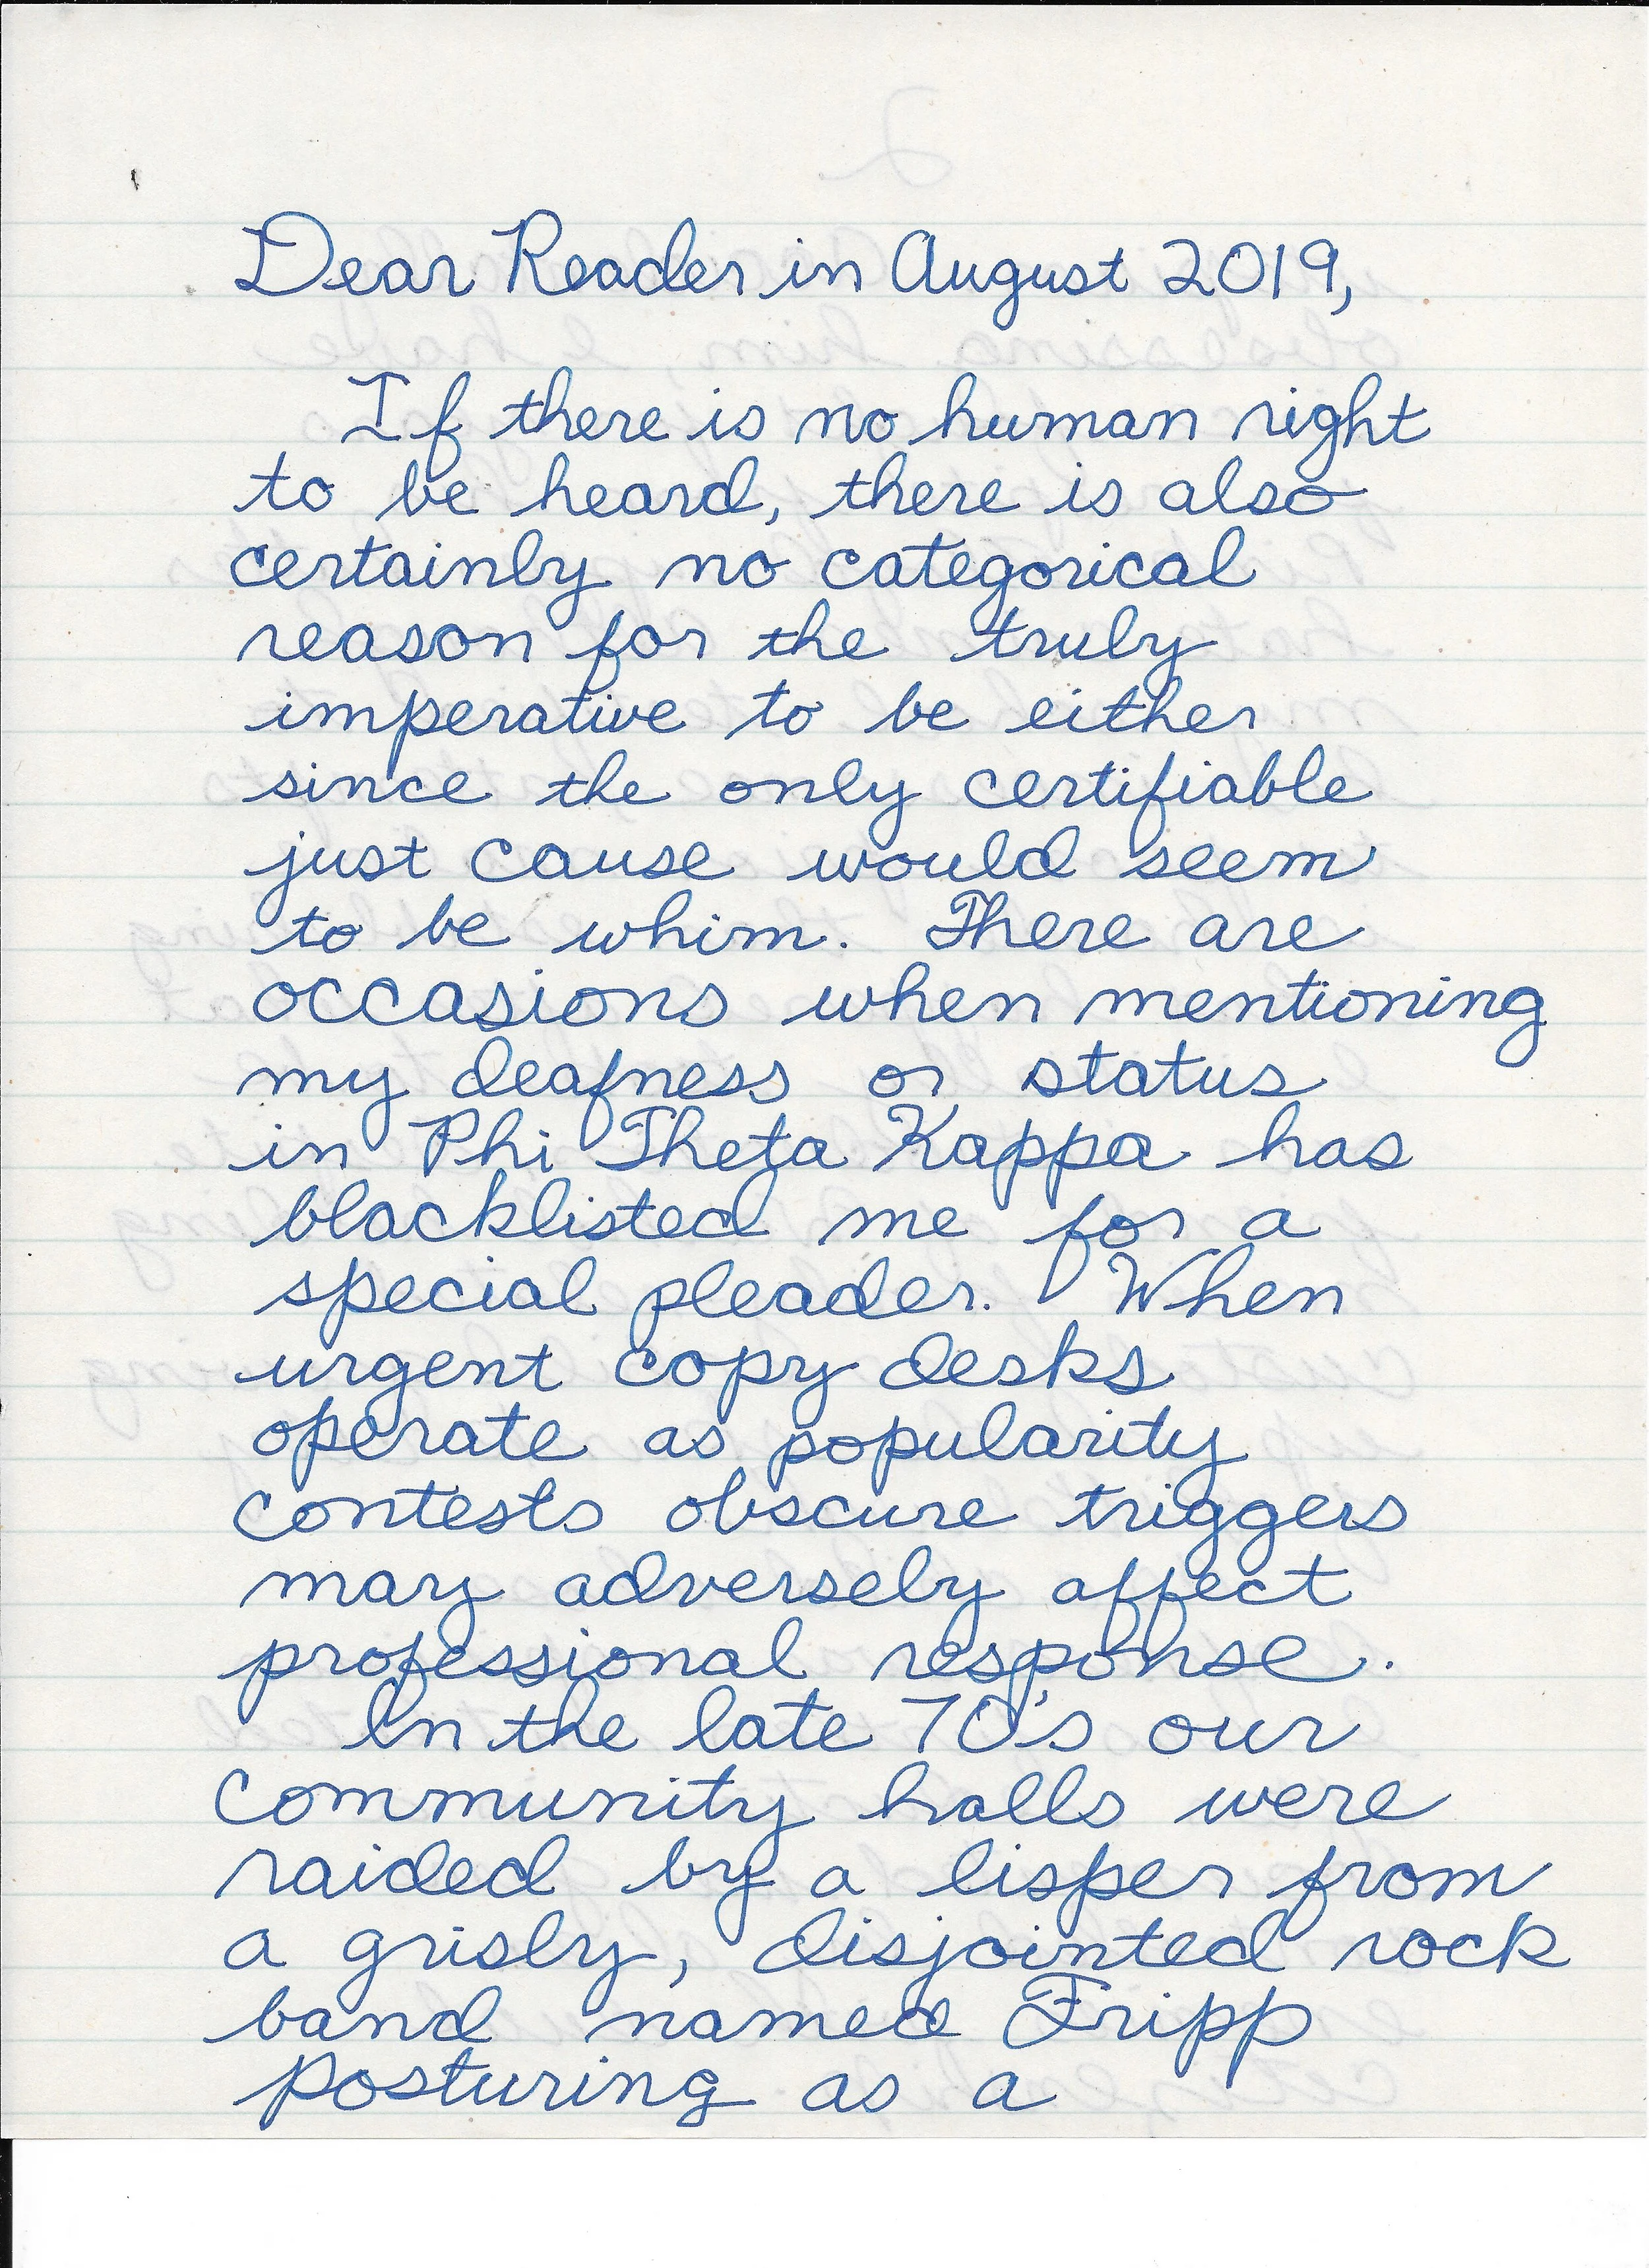 Dear Reader in August 2019,
If there is no human right
to be heard, there is also
certainly no categorical
reason for the truly
imperative to be either
since the only certifiable
just cause would seem
to be whim. There are
occasions when mentioning
my deafness or status
in Phi Theta Kappa has
blacklisted me for a
special pleader. When
urgent copy desks
operate as popularity
contests obscure triggers
may adversely affect
professional response.
In the late 70's our
community halls were
raided by a lisper from
a grisly, disjointed rock
band named Fripp
posturing as a